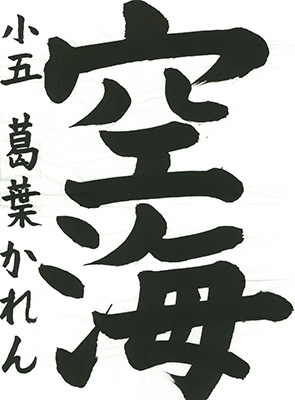 空海
小五 葛葉かれん